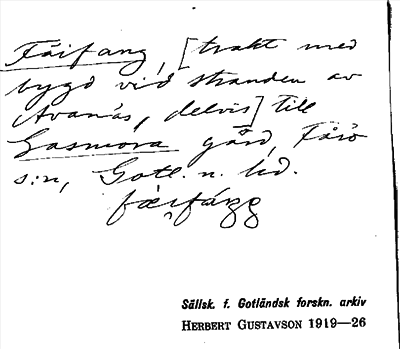 Fäifang, [trakt med
bygd vid stranden av
Avanäs, delvis] till
Lasmora gård, Fårö
s:n, Gotl. n. hd.
fæi̯fáŋg
Sällsk. f. Gotländsk forskn. arkiv
HERBERT GUSTAVSON 1919—26